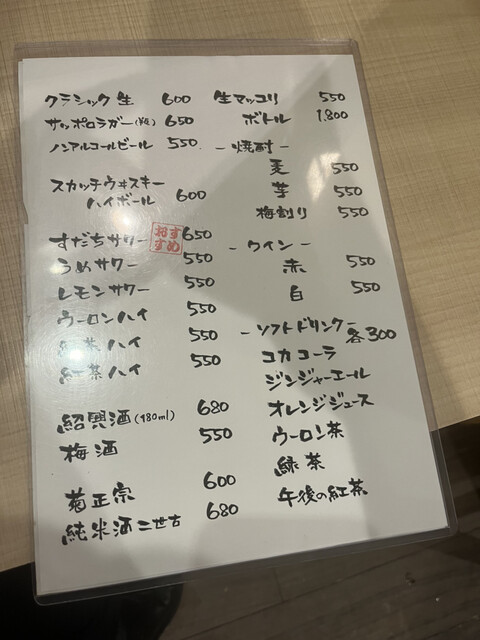 クラシック生 600
サッポロラガー(瓶) 650
ノンアルコールビール 550
スカッチウヰスキー
ハイボール 600
すだちサワー おすすめ 650
うめサワー 550
レモンサワー 550
ウーロンハイ 550
茶ハイ 550
紅茶ハイ 550
紹興酒(180ml) 680
梅酒 550
菊正宗 600
純米酒二世古 680
生マッコリ 550
ボトル 1.800
- 焼酎 -
麦 550
芋 550
梅割り 550
- ワイン -
赤 550
白 550
- ソフトドリンク -
各300
コカコーラ
ジンジャーエール
オレンジジュース
ウーロン茶
緑茶
午後の紅茶